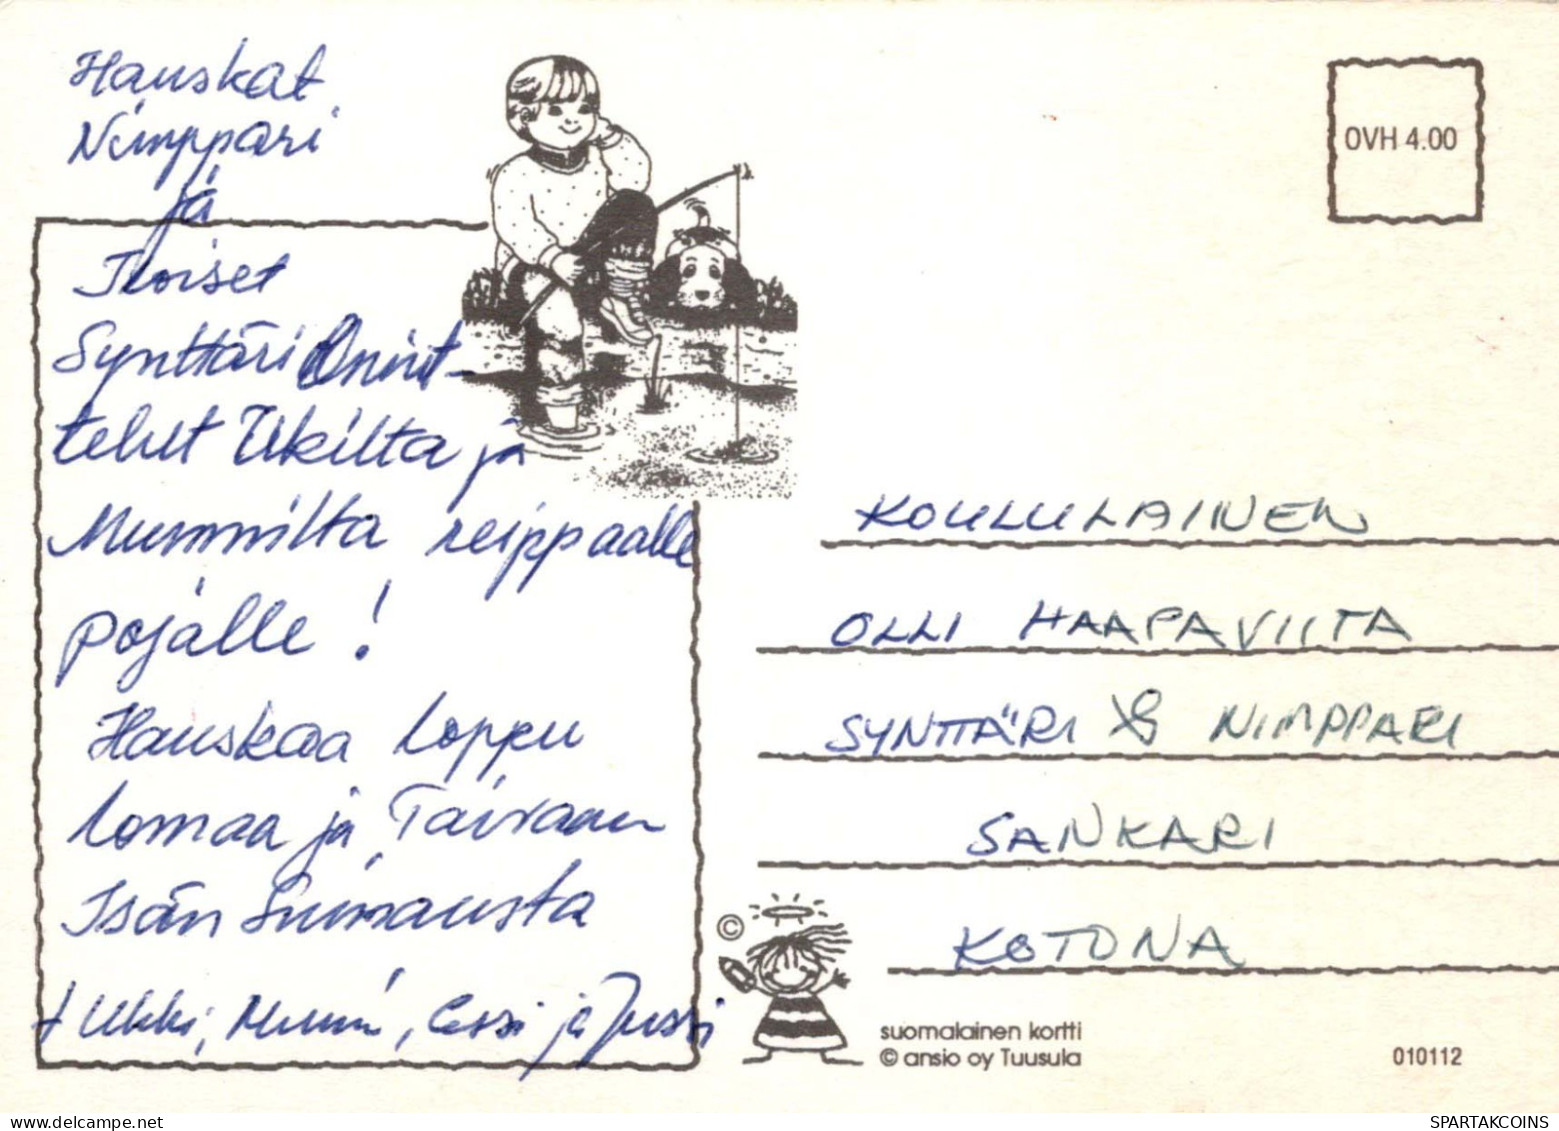 Hauskat
Nimppari
ja
Iloiset
Synttäri Onnit-
telut Ukilta ja
Mummilta reippaalle
pojalle!
Hauskaa loppu
lomaa ja Taivaan
Isän Siunausta
+ Ukki, Mummi, Essi ja Jussi
OVH 4.00
KOULULAINEN
OLLI HAAPAVIITA
SYNTTÄRI & NIMPPARI
SANKARI
KOTONA
©
suomalainen kortti
© ansio oy Tuusula
010112
SPARTAKCOINS